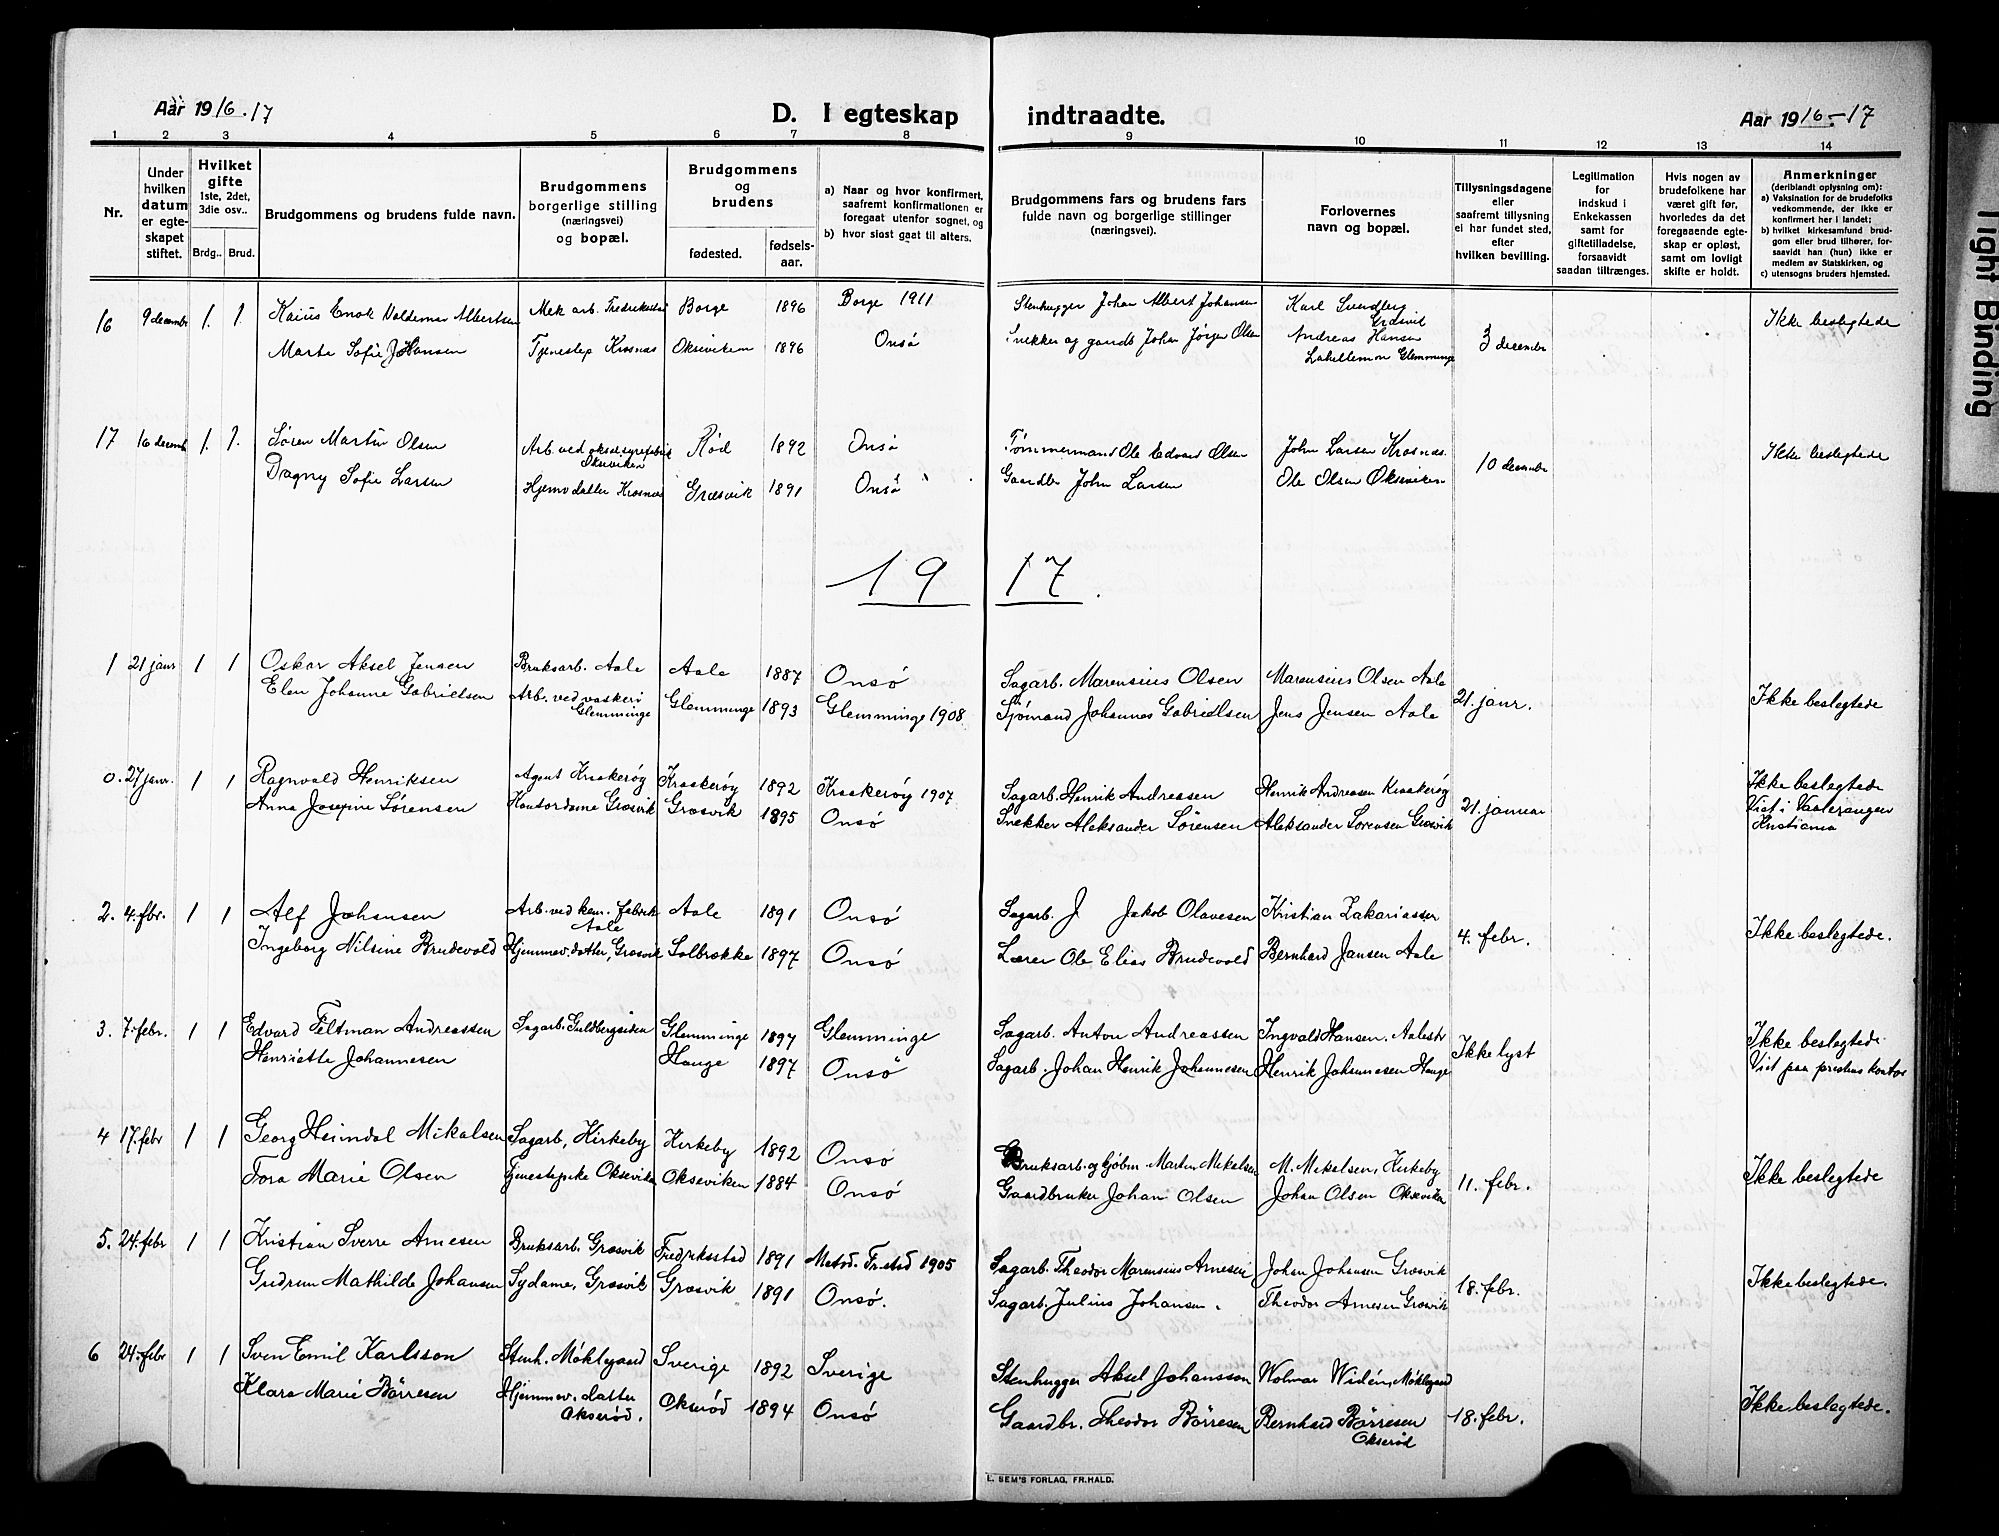 Aar 1916.17
D. I egteskap indtraadte.
Aar 1916-17
1 2 3 4 5 6 7 8 9 10 11 12 13 14
Nr.
Under hvilken datum er egteskapet stiftet.
Hvilket gifte 1ste, 2det, 3die osv..
Brdg.. Brud.
Brudgommens og brudens fulde navn.
Brudgommens borgerlige stilling (næringsvei) og bopæl.
Brudgommens og brudens
fødested.
fødsels-aar.
a) Naar og hvor konfirmert, saafremt konfirmationen er foregaat utenfor sognet, og
b) hvor sidst gaat til alters.
Brudgommens fars og brudens fars fulde navn og borgerlige stillinger (næringsvei).
Forlovernes navn og bopæl.
Tillysningsdagene eller saafremt tillysning ei har fundet sted, efter hvilken bevilling.
Legitimation for indskud i Enkekassen samt for giftetilladelse, forsaavidt saadan tiltrænges.
Hvis nogen av brudefolkene har været gift før, hvorledes da det foregaaende egteskap er opløst, samt om lovligt skifte er holdt.
Anmerkninger (deriblandt oplysning om): a) Vaksination for de brudefolks vedkommende, der ikke er konfirmert her i landet; b) hvilket kirkesamfund brudgom eller brud tilhører, forsaavidt han (hun) ikke er medlem av Statskirken, og c) utensogns bruders hjemsted.
16 9 decembr 1. 1. Kaius Enok Valdemar Albertsen Mek arb. Fredrikstad Borge 1896 Borge 1911 Stenhugger Johan Albert Johansen Karl Sundberg Græsvik 3 decembr Ikke beslegtede
Marta Sofie Johansen Tjenestep Krosnæs Oksviken 1896 Onsö Snekker og gaardb Johan Jørgen Olsen Andreas Hansen Glemminge
17 16 decemb 1. 1. Søren Martin Olsen Arb. ved oksalsyrefabrik Oksviken Rød 1892 Onsö Tømmermand Ole Edvard Olsen John Larsen Krosnæs. 10 decembr Ikke beslegtede
Dagny Sofie Larsen Hjemv datter Krosnæs Græsvik 1891 Onsö Gaardbr John Larsen Ole Olsen Oksviken
1917.
1 21 janr 1 1 Oskar Aksel Jensen Bruksarb. Aale Aale 1887 Onsö Sagarb. Marensius Olsen Marensius Olsen Aale 21. janr. Ikke beslegtede
Elen Johanne Gabrielsen Arb. ved vaskeri Glemminge Glemminge 1893 Glemminge 1908 Sjømand Johannes Gabrielsen Jens Jensen Aale
0. 27 janr. 1 1 Ragnvald Henriksen Agent Kraakerøy Kraakerøy 1892 Kraakerøy 1907 Sagarb. Henrik Andreasen Henrik Andreasen Kraakerøy 21. januar Ikke beslegtede
Anna Josefine Sørensen Kontordame Græsvik Græsvik 1895 Onsö Snekker Aleksander Sørensen Aleksander Sørensen Græsvik Viet i Vaalerangen
Kristiania
2. 4. fbr. 1 1 Alf Johansen Arb. ved kem. fabrik Aale Aale 1891 Onsö Sagarb. J Jakob Olavesen Kristian Zakariassen 4. febr. Ikke beslegtede.
Ingeborg Nilsine Brudevold Hjemmev. datter, Græsvik Solbrække 1897 Onsö Lærer Ole Elias Brudevold Bernhard Jansen Aale
3. 7. febr. 1 1 Edvard Feltman Andreassen Sagarb. Guldbergsiden Glemminge 1897 Glemminge Sagarb. Anton Andreassen Ingvald Hansen, Aalestr Ikke lyst Ikke beslegtede
Henriette Johannesen Hauge 1897 Onsö Sagarb. Johan Henrik Johannesen Henrik Johannesen Hauge Viet paa prestens kontor
4 17. febr 1 1 Georg Heimdal Mikalsen Sagarb, Kirkeby Kirkeby 1892 Onsö Bruksarb. og Gjöbm. Martin Mikalsen M. Mikalsen, Kirkeby 11. febr. Ikke beslegtede
Tora Marie Olsen Tjenestepike Oksviken Okseviken 1884 Onsö Gaardbruker Johan Olsen Johan Olsen Okseviken
5. 24. febr 1 1 Kristian Sverre Arnesen Bruksarb. Græsvik Fredriksstad 1891 Metod. Fr.stad 1905 Sagarb. Theodor Marensius Arnesen Johan Johansen Græsvik 18. febr. Ikke beslegtede.
Gudrun Mathilde Johansen Sydame, Græsvik Græsvik 1891 Onsö. Sagarb. Julius Johansen. Theodor Arnesen Græsvik
6 24. febr 1 1 Sven Emil Karlsson Stenh. Møklegaard Sverige 1892 Sverige Stenhugger Aksel Johansson Wolmar Widén, Møklegaard 18. febr. Ikke beslegtede.
Klara Marie Börresen Hjemmev. datter Okserød. Okserød 1894 Onsö Gaardbr. Theodor Börresen Bernhard Börresen Okserød
E. SEM'S FORLAG, FR.HALD.
Tight Binding